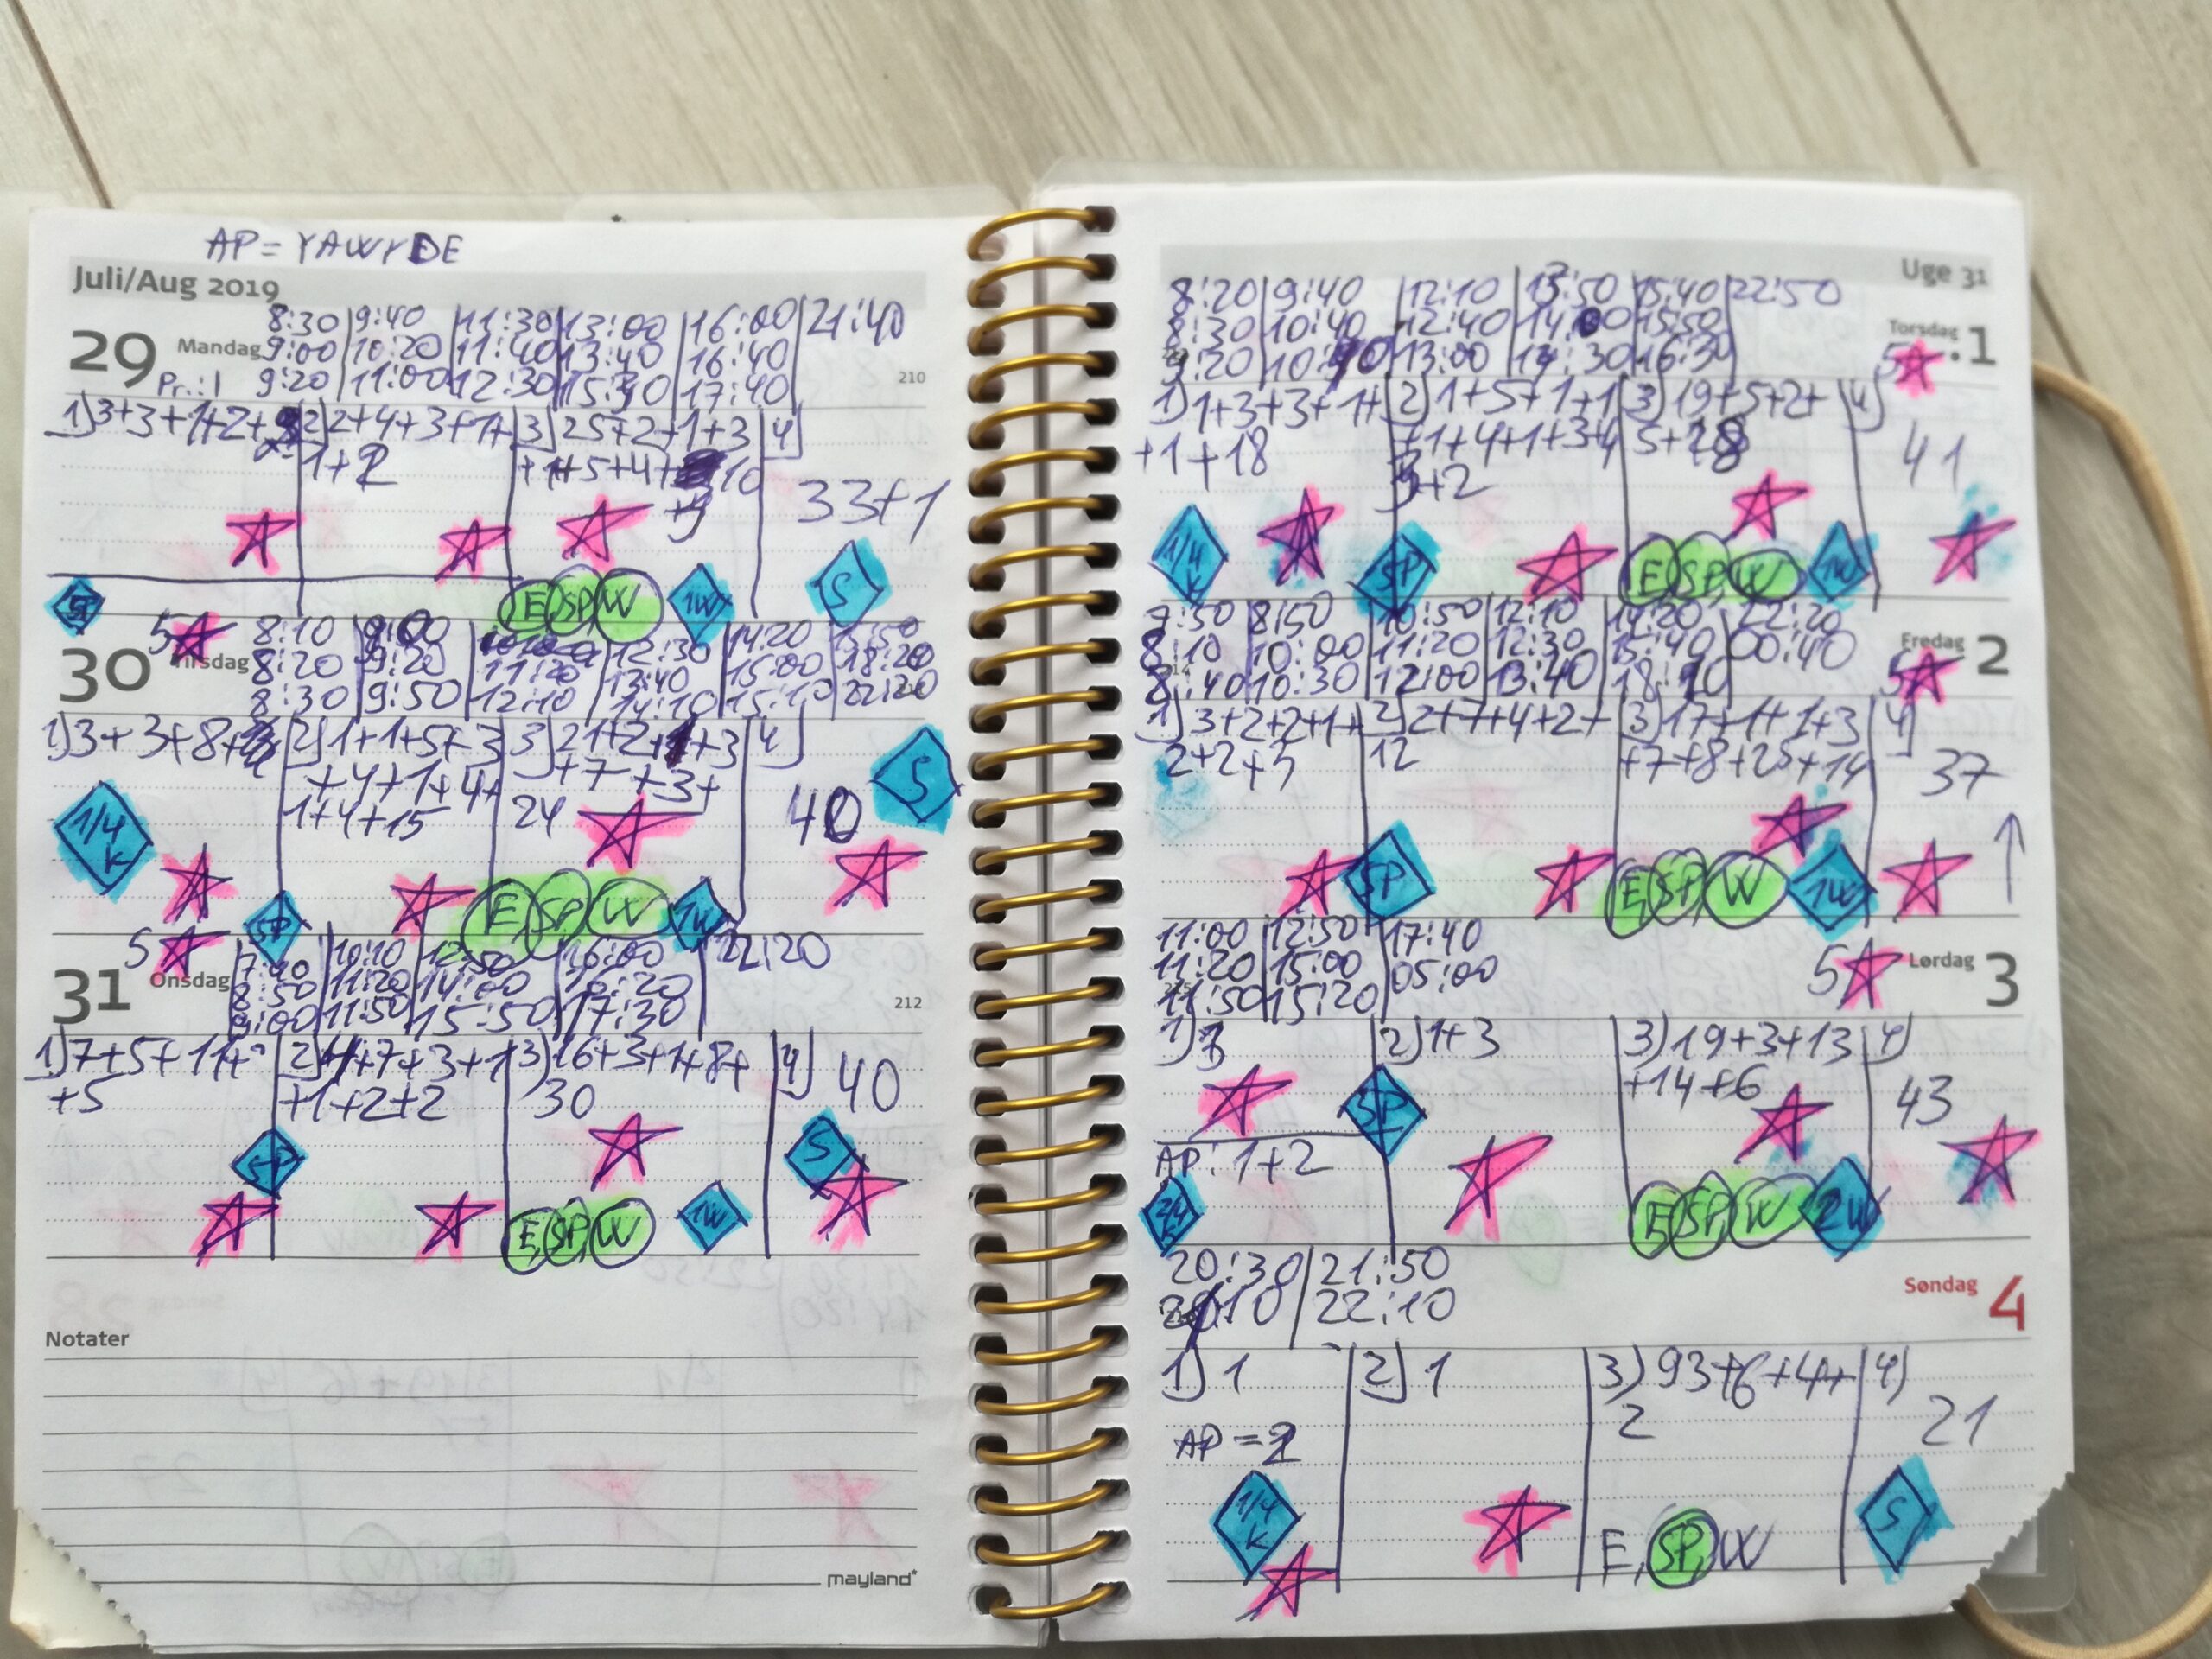 AP = YAWYDE
Juli/Aug 2019
8:30 9:40 11:30 13:00 16:00 21:40
29 Mandag 9:00 10:20 11:40 13:40 16:40
Pr.:1 9:20 11:00 12:30 17:40 210
1) 3+3+1+2+ 2) 2+4+3+1+ 3) 25+2+1+3 4)
1+2 +1+5+4+ 10
33+1
E, SP, W 1W S
5
8:10 9:00 12:30 14:20 15:50
30 Tirsdag 8:20 9:20 11:20 13:40 15:00 18:20
8:30 9:50 12:10 14:10 15:10 22:20
1) 3+3+8+ 2) 1+1+5+3 3) 21+2+ +3 4)
+4+1+4+ +7+3+
1+4+15 24 40 S
1/4 K
SP E, SP, W 1W
5
7:40 10:10 12:50 16:00 22:20
31 Onsdag 8:50 11:20 14:00 16:20
9:00 11:50 15:50 17:30 212
1) 7+5+11+ 2) 4+7+3+1 3) 16+3+1+8+ 4) 40
+5 +1+2+2 30
SP S
E, SP, W 1W
Notater
mayland
Uge 31
8:20 9:40 12:10 13:50 15:40 22:50
8:30 10:40 12:40 14:00 15:50
9:20 13:00 14:30 16:30
Torsdag 1
5
1) 1+3+3+1+ 2) 1+5+1+1 3) 19+5+2+ 4)
+1+18 +1+4+1+3+4 5+28 41
3+2
1/4 K SP E, SP, W 1W
8:50 10:50 12:10 14:20 22:20
8:10 10:00 11:20 12:30 15:40 00:40
8:40 10:30 12:00 13:40 18:10
Fredag 2
5
1) 3+2+2+1+ 2) 2+7+4+2+ 3) 17+1+1+3 4)
2+2+5 12 +7+8+25+14 37
SP E, SP, W 1W
11:00 12:50 17:40
11:20 15:00 05:00
11:50 15:20
5 Lørdag 3
1) 2) 1+3 3) 19+3+13 4)
+14+6 43
SP
AP: 1+2
2/4 E, SP, W 2W
20:30 21:50
22:10
Søndag 4
1) 1 2) 1 3) 93+6+4+ 4)
2 21
AP =
1/4 K E, SP, W S